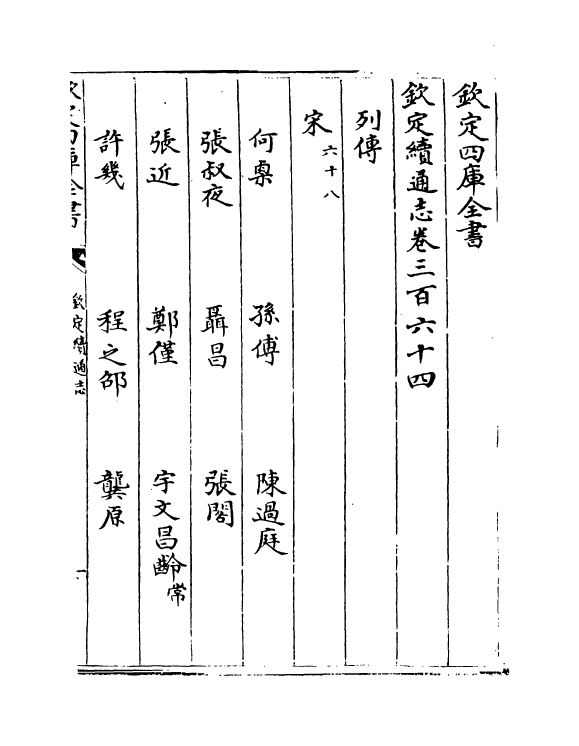 欽定四庫全書
欽定續通志卷三百六十四
列傳
宋六十八
何㮚 孫傅 陳過庭
張叔夜 聶昌 張閣
張近 鄭僅 宇文昌齡常
許幾 程之邵 龔原
欽定四庫全書 欽定續通志 一